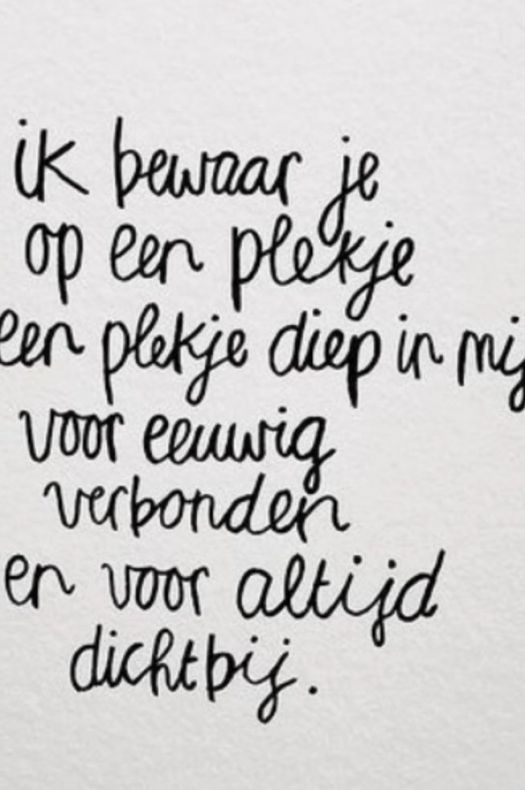 ik bewaar je
op een plekje
een plekje diep in mij
voor eeuwig
verbonden
en voor altijd
dichtbij.